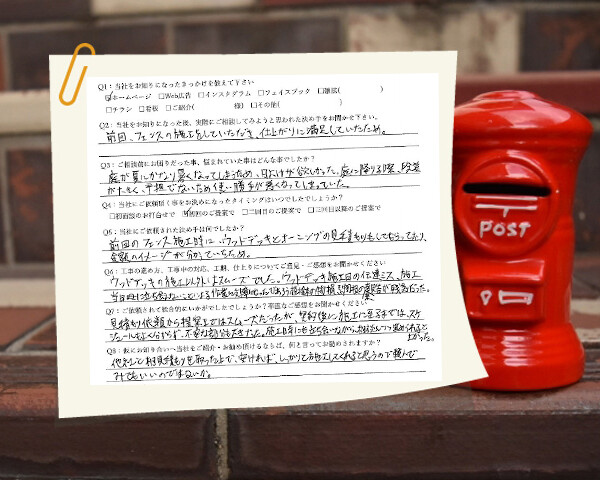 Q1：当社をお知りになったきっかけを教えて下さい
☑ホームページ □Web広告 □インスタグラム □フェイスブック □雑誌( )
□チラシ □看板 □ご紹介( 様) □その他( )
Q2：当社をお知りになった後、実際にご相談してみようと思われた決め手をお聞かせ下さい。
前回、フェンスの施工をしていただき、仕上がりに満足していたため。
Q3：ご相談前にお困りだった事、悩まれていた事はどんな事でしたか？
庭が夏にかなり暑くなってしまうため、日よけが欲しかった。庭に降りる際、段差
がたかく、平坦でないため使い勝手が悪くなってしまっていた。
Q4：当社にご依頼頂く事をお決めになったタイミングはいつでしたでしょうか？
□初回面談のお打合せで ☑初回のご提案で □二回目のご提案で □三回目以降のご提案で
Q5：当社にご依頼された決め手は何でしたか？
前回のフェンス施工時に、ウッドデッキとオーニングの見積もりもしてもらっており、
金額のイメージが分かっていたため。
Q6：工事の進め方、工事中の対応、工期、仕上りについてご意見・ご感想をお聞かせください
ウッドデッキの施工以外はスムーズでした。ウッドデッキ施工日の伝達ミス、施工
Q7：ご依頼されて総合的にいかがでしたでしょうか？率直なご感想をお聞かせください
見積もり依頼から提案まではスムーズだったが、契約後に施工に至るまでは、スケ
Q8：仮にお知り合いへ当社をご紹介・お勧め頂けるならば、何と言ってお勧めされますか？
他社と相見積もりを取った上で、安ければ、しっかりと施工してくれると思うので頼んで
みてもいいのではないか。
POST